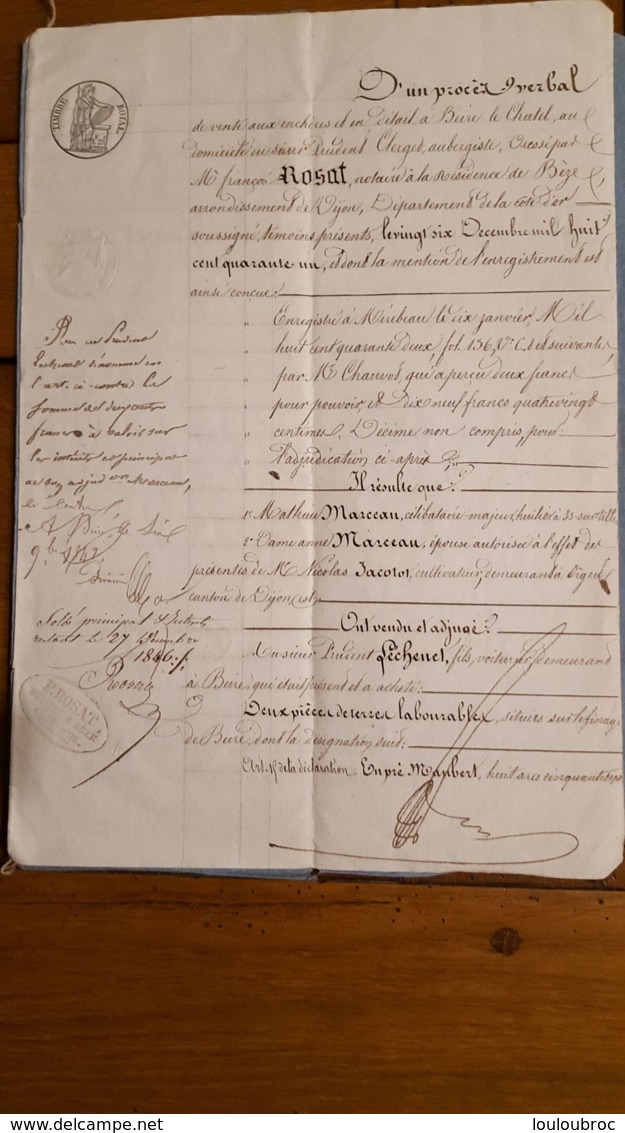 TIMBRE ROYAL
D'un procès verbal
de vente aux enchères et en détail, à Beire le Chatel, au
domicile du sieur Prudent Clerget, aubergiste, dressé par
Me françois Rosat, notaire à la Résidence de Bèze,
arrondissement de Dijon, Département de la cote d'or
soussigné, témoins présents, le vingt six Décembre mil huit
cent quarante un, et dont la mention de l'enregistrement est
ainsi conçue:
" Enregistré à Mirebeau le dix janvier, Mil
" huit cent quarante deux, fol. 136, Vo C. 8 et suivantes,
" par Mr Chauvot, qui a perçu deux francs
" pour pouvoir, et dix neuf francs quatre vingt
" centimes, Décime non compris, pour
" l'adjudication ci-après
Il résulte que:
1o Mathieu Marceau, célibataire majeur, huilier à Is-sur-tille
2o Dame anne Marceau, épouse autorisée à l'effet des
présentes de Mr Nicolas Jacotot, cultivateur, demeurant à Orgeux
canton de Dijon (est)
Ont vendu et adjugé:
à Monsieur Prudent Péchenet, fils, voiturier, demeurant
à Beire, qui était présent et a acheté:
Deux pièces de terres labourables, situées sur le finage
de Beire, dont la désignation suit:
Art. 1er de la déclaration. En pré Maubert, huit ares cinquante sept
l'art. ci-contre la
somme de
francs à valoir sur
les intérêts et principal
de son adjudon Marceau,
A Bèze, le
9bre 1842
Soldé principal & intérêts
le 27 Décembre
1846
Rosat
F. ROSAT
louloubroc